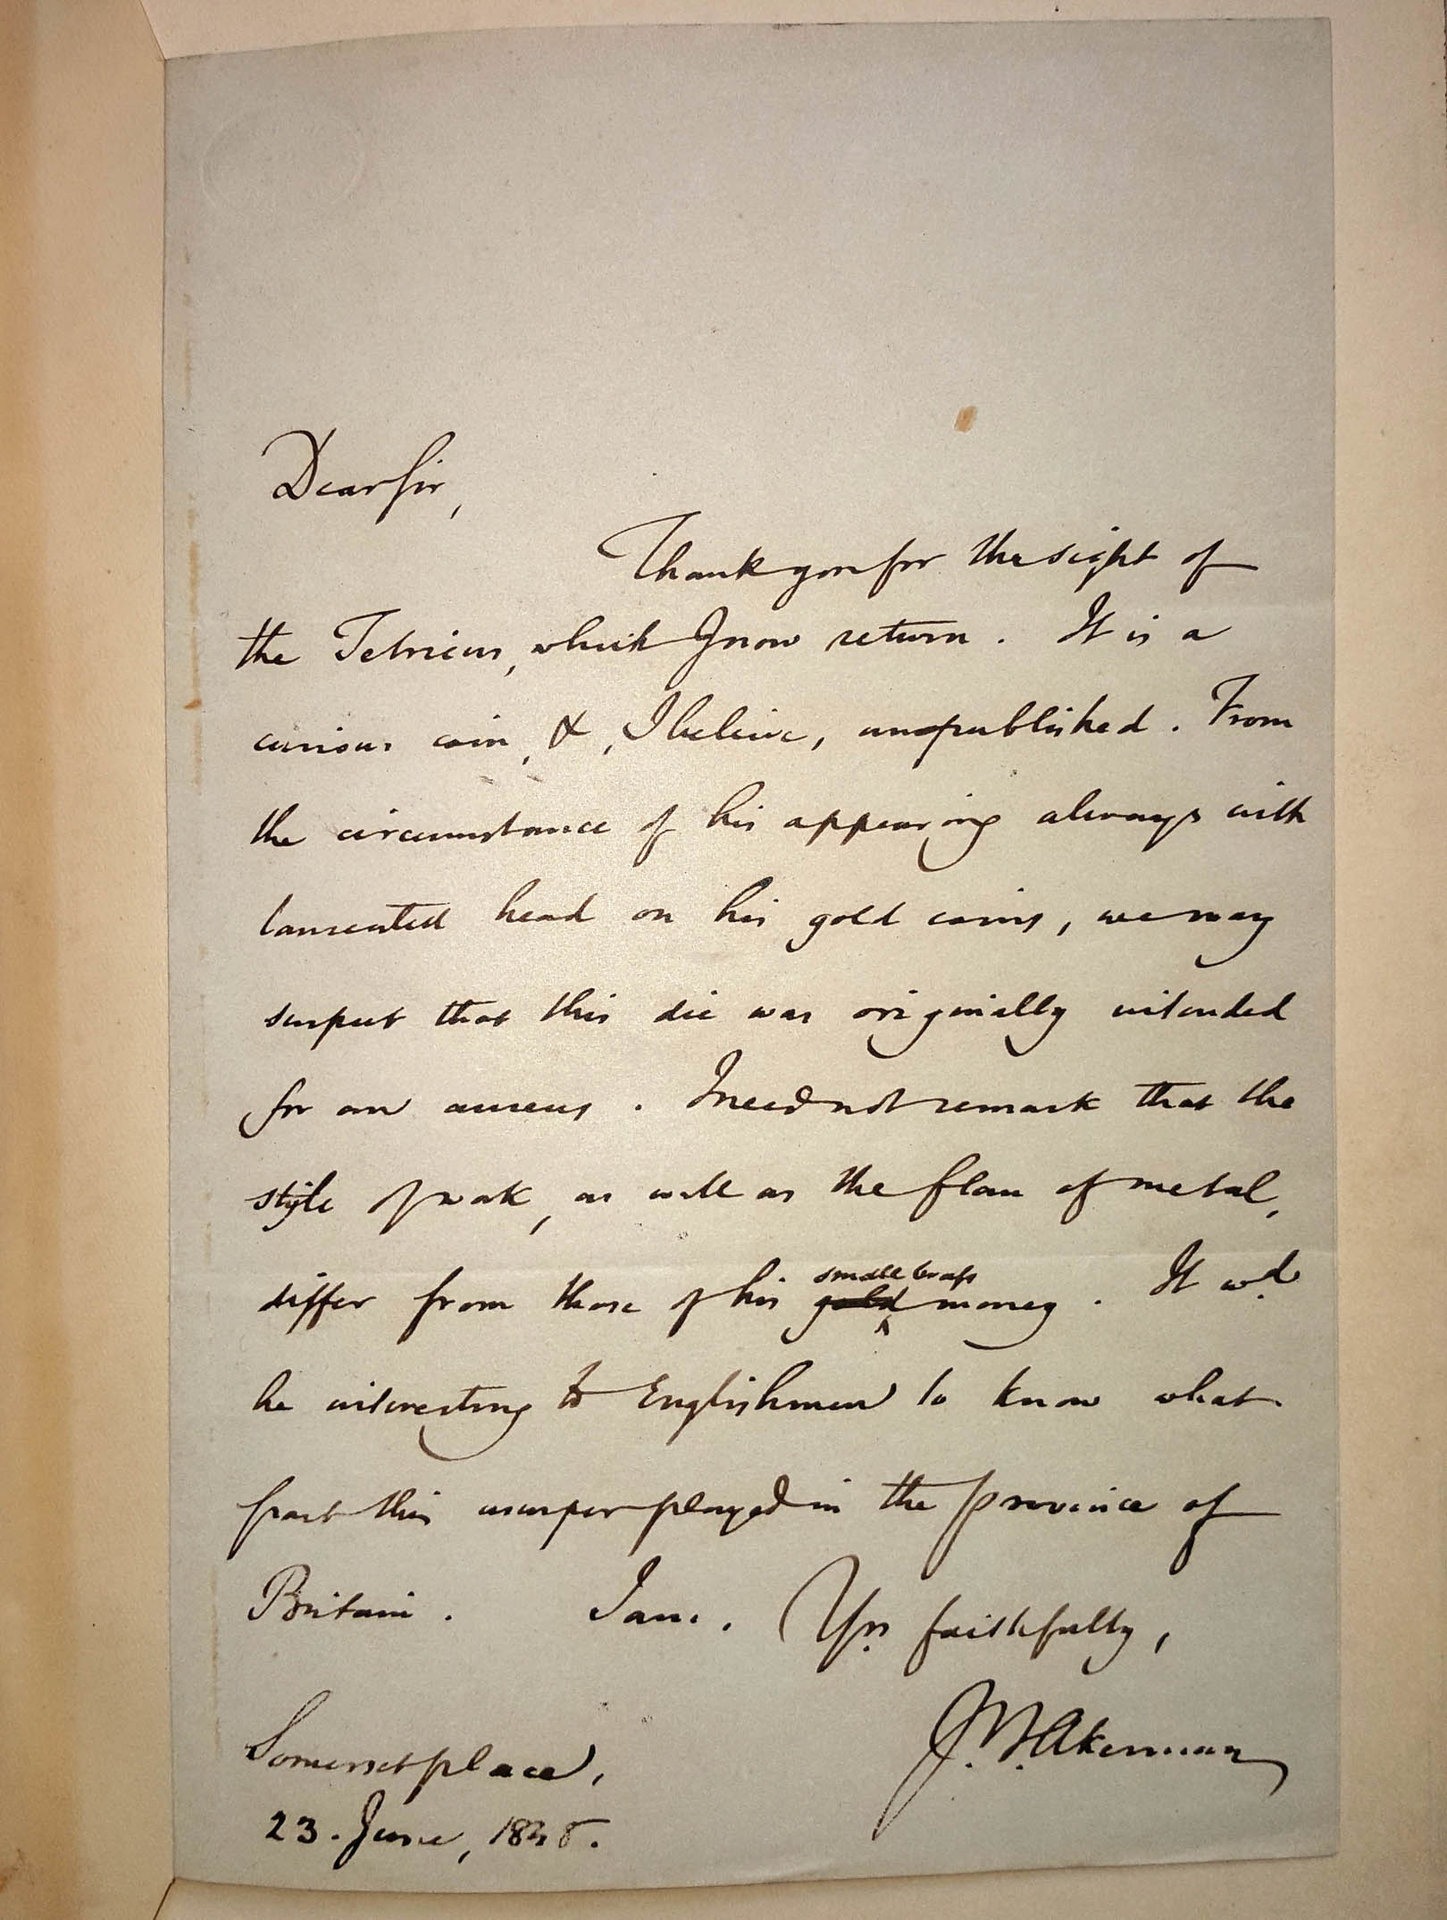 Dear Sir,
Thank you for the sight of
the Tetricus, which I now return. It is a
curious coin, &, I believe, unpublished. From
the circumstance of his appearing always with
laureated head on his gold coins, we may
suspect that this die was originally intended
for an aureus. I need not remark that the
style of work, as well as the flan of metal,
differ from those of his gold small brass money. It wd.
be interesting to Englishmen to know what
part this usurper played in the province of
Britain. I am, Yrs. faithfully,
J. Y. Akerman
Somerset place,
23. June,